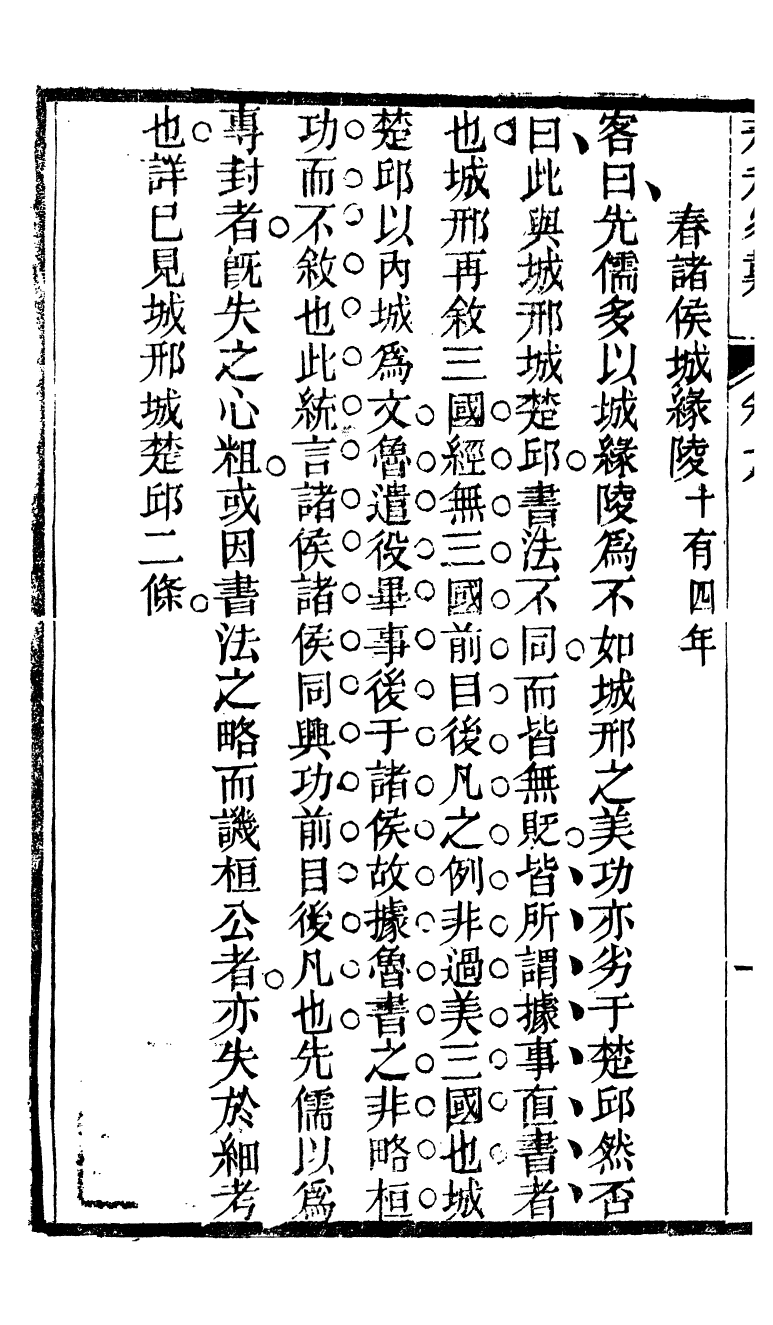 春諸侯城緣陵十有四年
客曰先儒多以城緣陵爲不如城邢之美功亦劣于楚邱然否
曰此與城邢城楚邱書法不同而皆無貶皆所謂據事直書者
也城邢再敘三國經無三國前目後凡之例非過美三國也城
楚邱以內城爲文魯遣役畢事後于諸侯故據魯書之非略桓
功而不敘也此統言諸侯諸侯同興功前目後凡也先儒以爲
專封者旣失之心粗或因書法之略而譏桓公者亦失於細考
也詳巳見城邢城楚邱二條